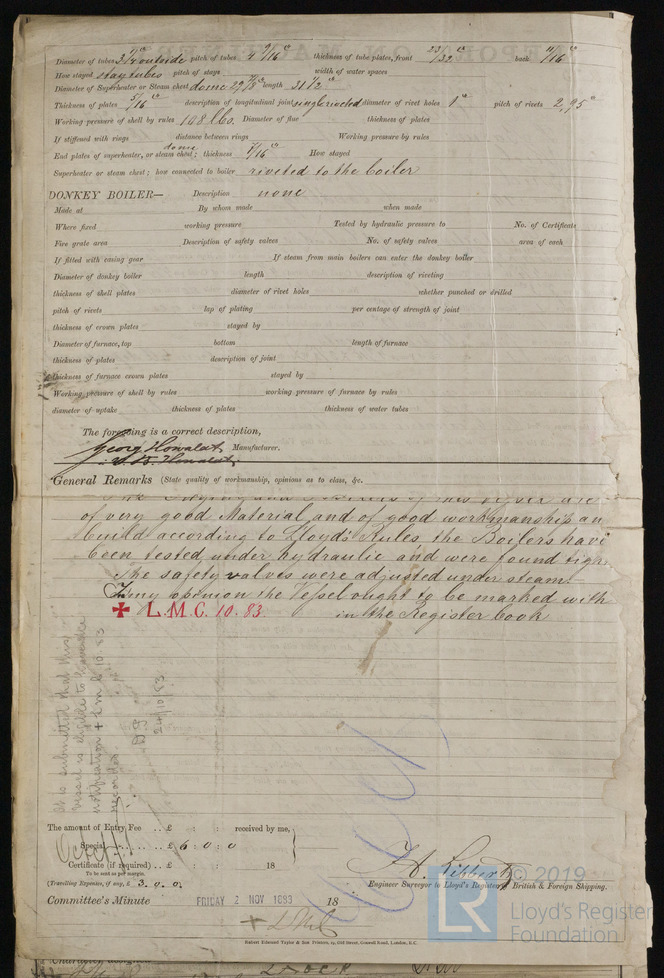 Diameter of tubes 3 1/4" outside pitch of tubes 4 9/16" thickness of tube plates, front 23/32" back 11/16"
How stayed stay tubes pitch of stays width of water spaces
Diameter of Superheater or Steam chest dome 27 length 31 1/2"
Thickness of plates 5/16" description of longitudinal joint single riveted diameter of rivet holes 1" pitch of rivets 2,95"
Working pressure of shell by rules 108 lbs. Diameter of flue thickness of plates
If stiffened with rings distance between rings Working pressure by rules
End plates of superheater, or steam chest; dome thickness How stayed
Superheater or steam chest; how connected to boiler riveted to the boiler
DONKEY BOILER— Description none
Made at By whom made when made
Where fixed working pressure Tested by hydraulic pressure to No. of Certificate
Fire grate area Description of safety valves No. of safety valves area of each
If fitted with easing gear If steam from main boilers can enter the donkey boiler
Diameter of donkey boiler length description of riveting
thickness of shell plates diameter of rivet holes whether punched or drilled
pitch of rivets lap of plating per centage of strength of joint
thickness of crown plates stayed by
Diameter of furnace, top bottom length of furnace
thickness of plates description of joint
thickness of furnace crown plates stayed by
Working pressure of shell by rules working pressure of furnace by rules
diameter of uptake thickness of plates thickness of water tubes
The foregoing is a correct description,
Georg Howaldt Manufacturer.
Howaldt
General Remarks (State quality of workmanship, opinions as to class, &c.
The Engine and Boilers of this Vessel are
of very good Material and of good workmanship an
build according to Lloyds Rules, the Boilers havi
been tested under hydraulic and were found tigh
The safety valves were adjusted under steam.
In my opinion the Vessel ought to be marked with
+ L.M.C. 10.83. in the Register book
It is submitted that this
vessel is eligible to have the
notification + LMC 10.83
recorded
24/10/83
The amount of Entry Fee .. £ : : received by me,
Special .. £ 6 : 0 : 0
Certificate (if required) .. £ : : 18
To be sent as per margin.
(Travelling Expenses, if any, £ 3. 0. 0.)
Engineer Surveyor to Lloyd's Register of British & Foreign Shipping.
Committee's Minute FRIDAY 2 NOV 1883 18
+ LMC
© 2019
LR
Lloyd's Register
Foundation